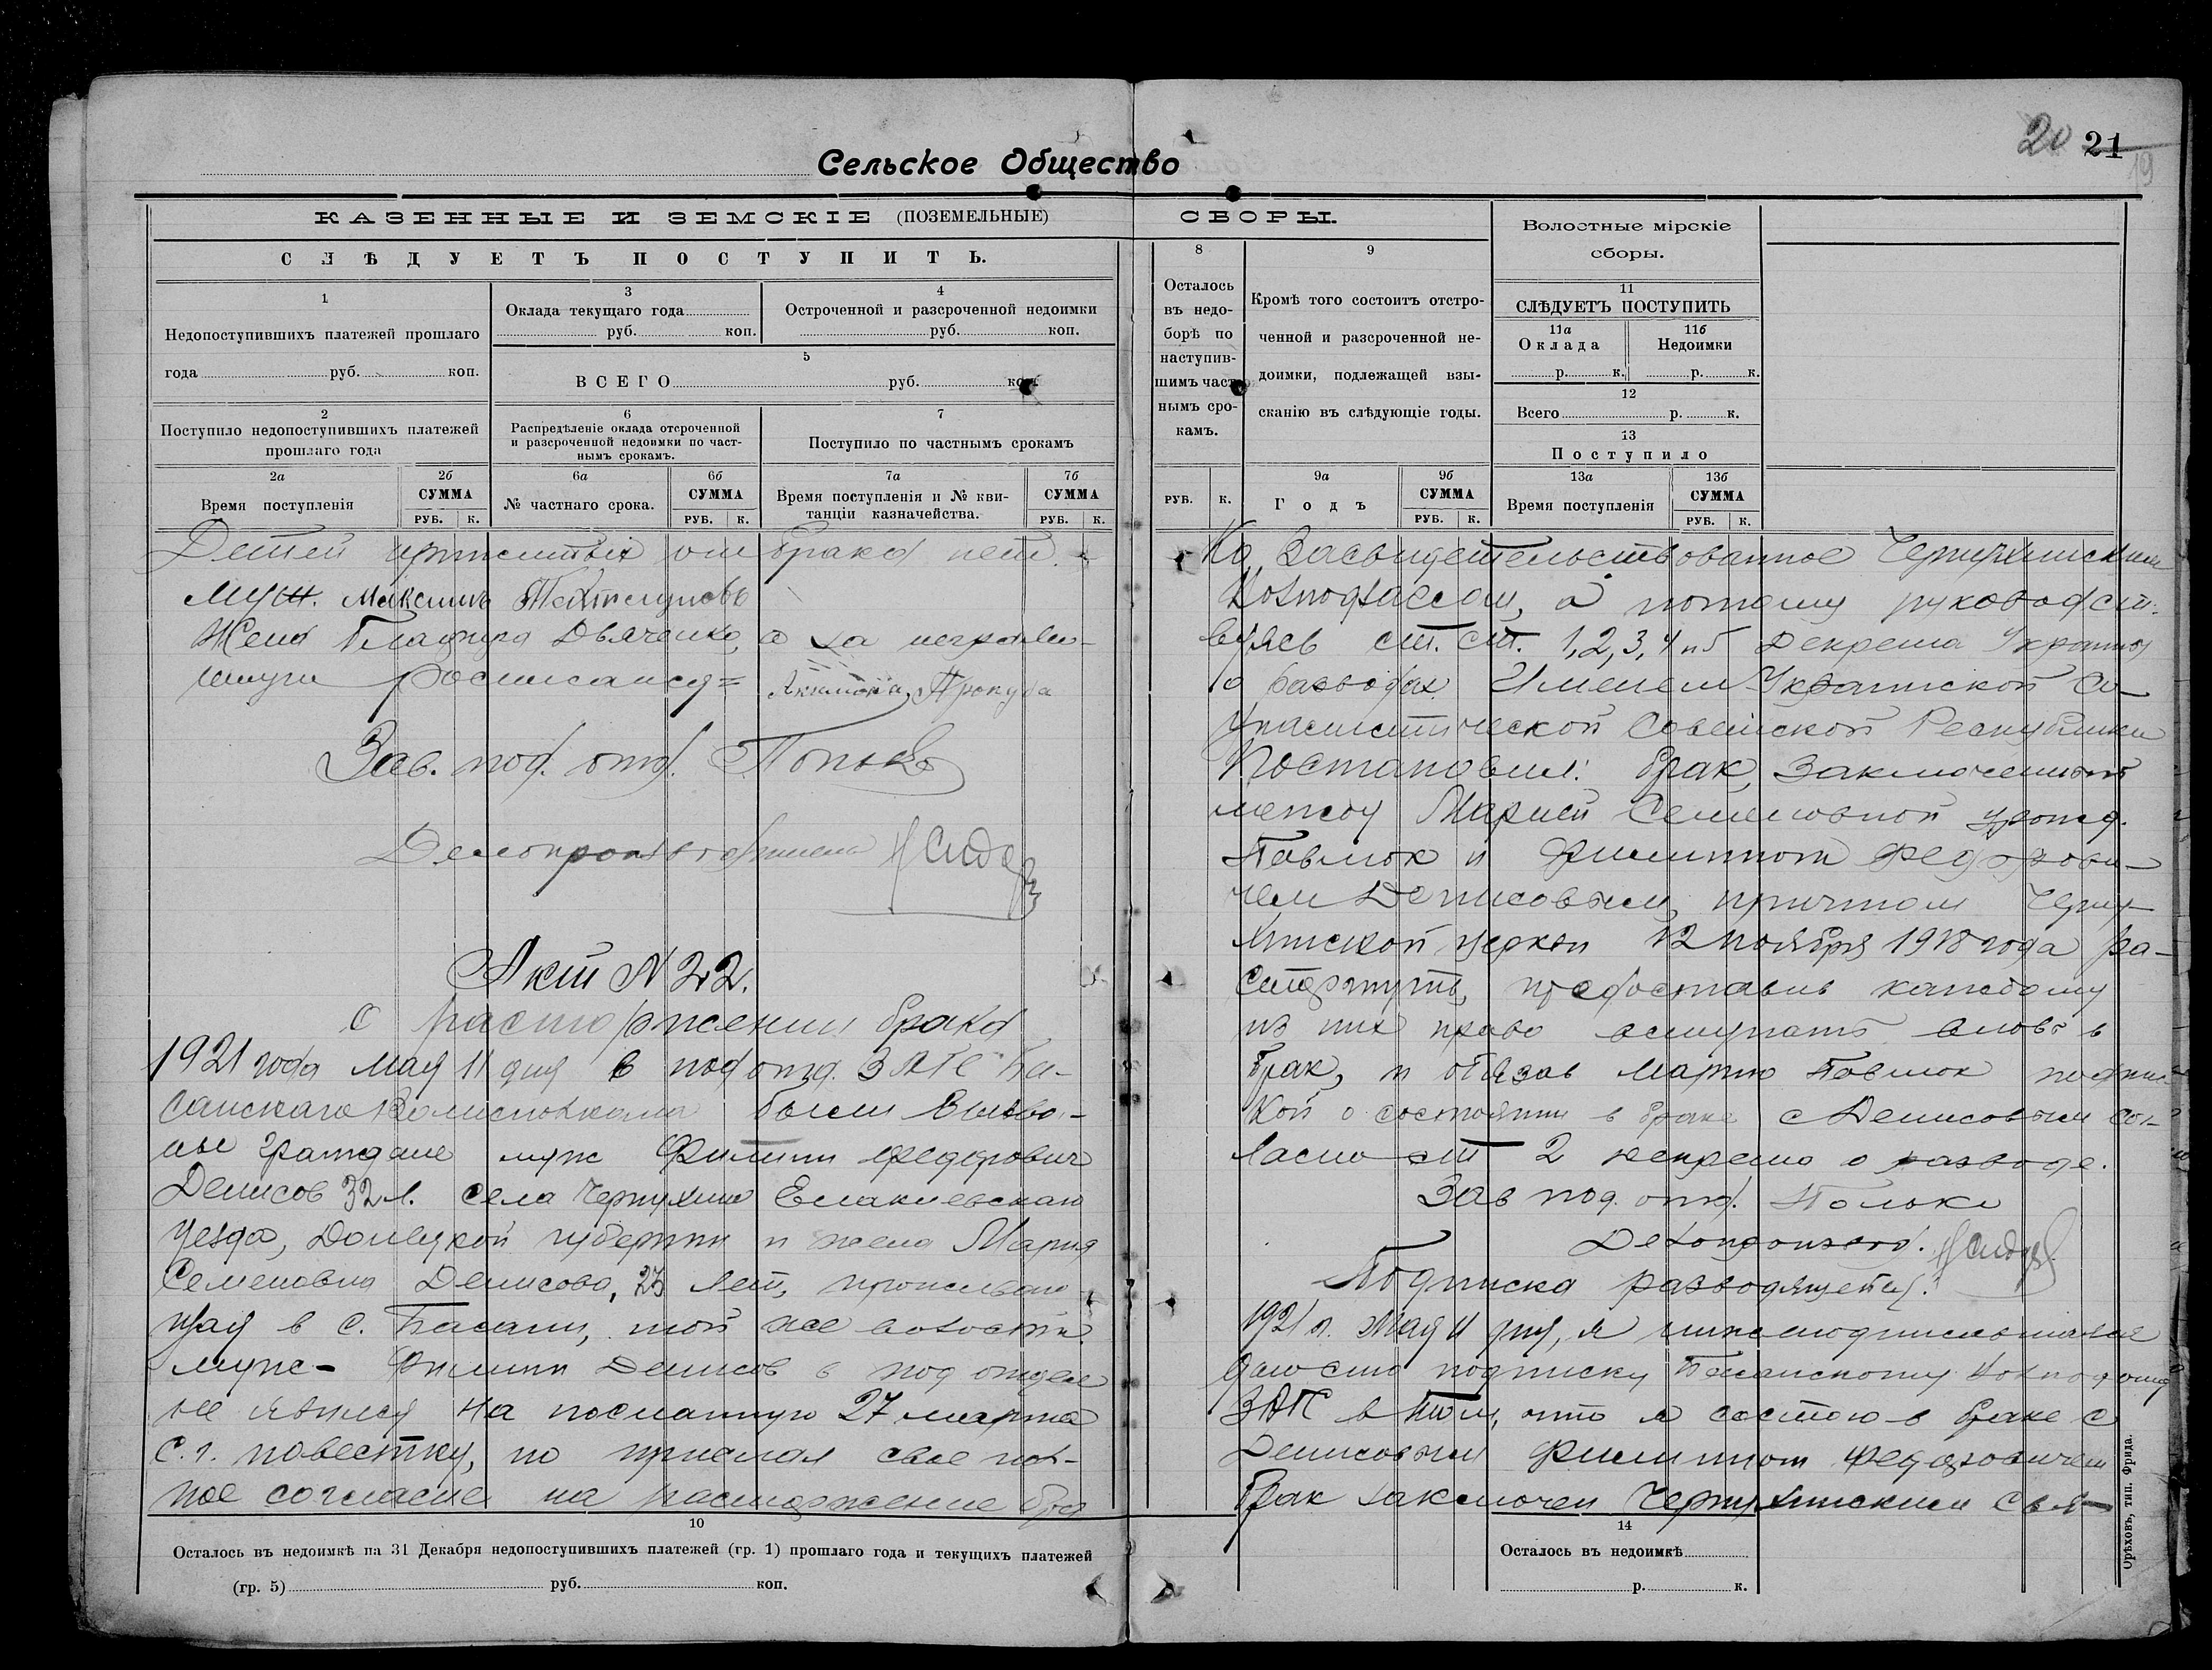 20 21
19
Сельское Общество
КАЗЕННЫЕ И ЗЕМСКІЕ (ПОЗЕМЕЛЬНЫЕ) СБОРЫ.
СЛѢДУЕТЪ ПОСТУПИТЬ.
1
Недопоступившихъ платежей прошлаго
года руб. коп.
2
Поступило недопоступившихъ платежей
прошлаго года
2а
Время поступленія
2б
СУММА
РУБ. К.
3
Оклада текущаго года
руб. коп.
4
Остроченной и разсроченной недоимки
руб. коп.
5
ВСЕГО руб. коп.
6
Распредѣленіе оклада отсроченной
и разсроченной недоимки по част-
нымъ срокамъ.
6а
№ частнаго срока.
6б
СУММА
РУБ. К.
7
Поступило по частнымъ срокамъ
7а
Время поступленія и № кви-
танціи казначейства.
7б
СУММА
РУБ. К.
Детей прижитых от брака нет.
Муж. Максимъ
Жена Дьяченко, а за неграмо-
тную росписался =
Зав. под. отд. Попько
Делопроизводитель
Акт N 22.
о расторжении брака
1921 года мая 11 дня в подотд. ЗАГС Ба-
санскаго Волисполкома были вызва-
ны граждане муж Филипп Федорович
Денисов 32 л. села Чернухино Енакиевскаго
уезда, Донецкой губернии и жена Мария
Семеновна Денисова, 23 лет, проживаю
щая в с. Басани, той же волости.
муж - Филипп Денисов в под отдел
не явился на посланную 27 марта
с.г. повестку, но прислал свое пол-
ное согласие на расторжение бра
10
Осталось въ недоимкѣ на 31 Декабря недопоступившихъ платежей (гр. 1) прошлаго года и текущихъ платежей
(гр. 5) руб. коп.
8
Осталось
въ недо-
борѣ по
наступив-
шимъ част
нымъ сро-
камъ.
РУБ. К.
9
Кромѣ того состоитъ отстро-
ченной и разсроченной не-
доимки, подлежащей взы-
сканію въ слѣдующіе годы.
9а
Годъ
9б
СУММА
РУБ. К.
Волостные мірскіе
сборы.
11
СЛѢДУЕТЪ ПОСТУПИТЬ
11а
Оклада
р. к.
11б
Недоимки
р. к.
12
Всего р. к.
13
Поступило
13а
Время поступленія
13б
СУММА
РУБ. К.
ка, Засвидетельствованное Чернухинским
а потому руководст-
вуясь ст. ст. 1, 2, 3, 4 и 5 Декрета
о разводах. Именем Украинской Со-
циалистической Советской Республики
Постановил: брак, заключенный
между Марией Семеновной урожд.
Павлюк и Филиппом Федорови-
чем Денисовым, причтом Черну-
хинской церкви 12 ноября 1918 года ра-
сторгнуть, предоставив каждому
из них право вступать вновь в
брак, и обязав Марию Павлюк подпис
кой о состоянии в браке с Денисовым сог-
ласно ст 2 декрета о разводе.
Зав под. отд. Попько
Делопроизвод.
Подписка разводящейся.
1921 г. Мая 11 дня, я нижеподписавшаяся
даю сию подписку Басанскому
ЗАГС в том, что я состою в браке с
Денисовым Филиппом Федоровичем
брак заключен Чернухинским свя-
14
Осталось въ недоимкѣ
р. к.
Орѣховъ, тип. Фрида.